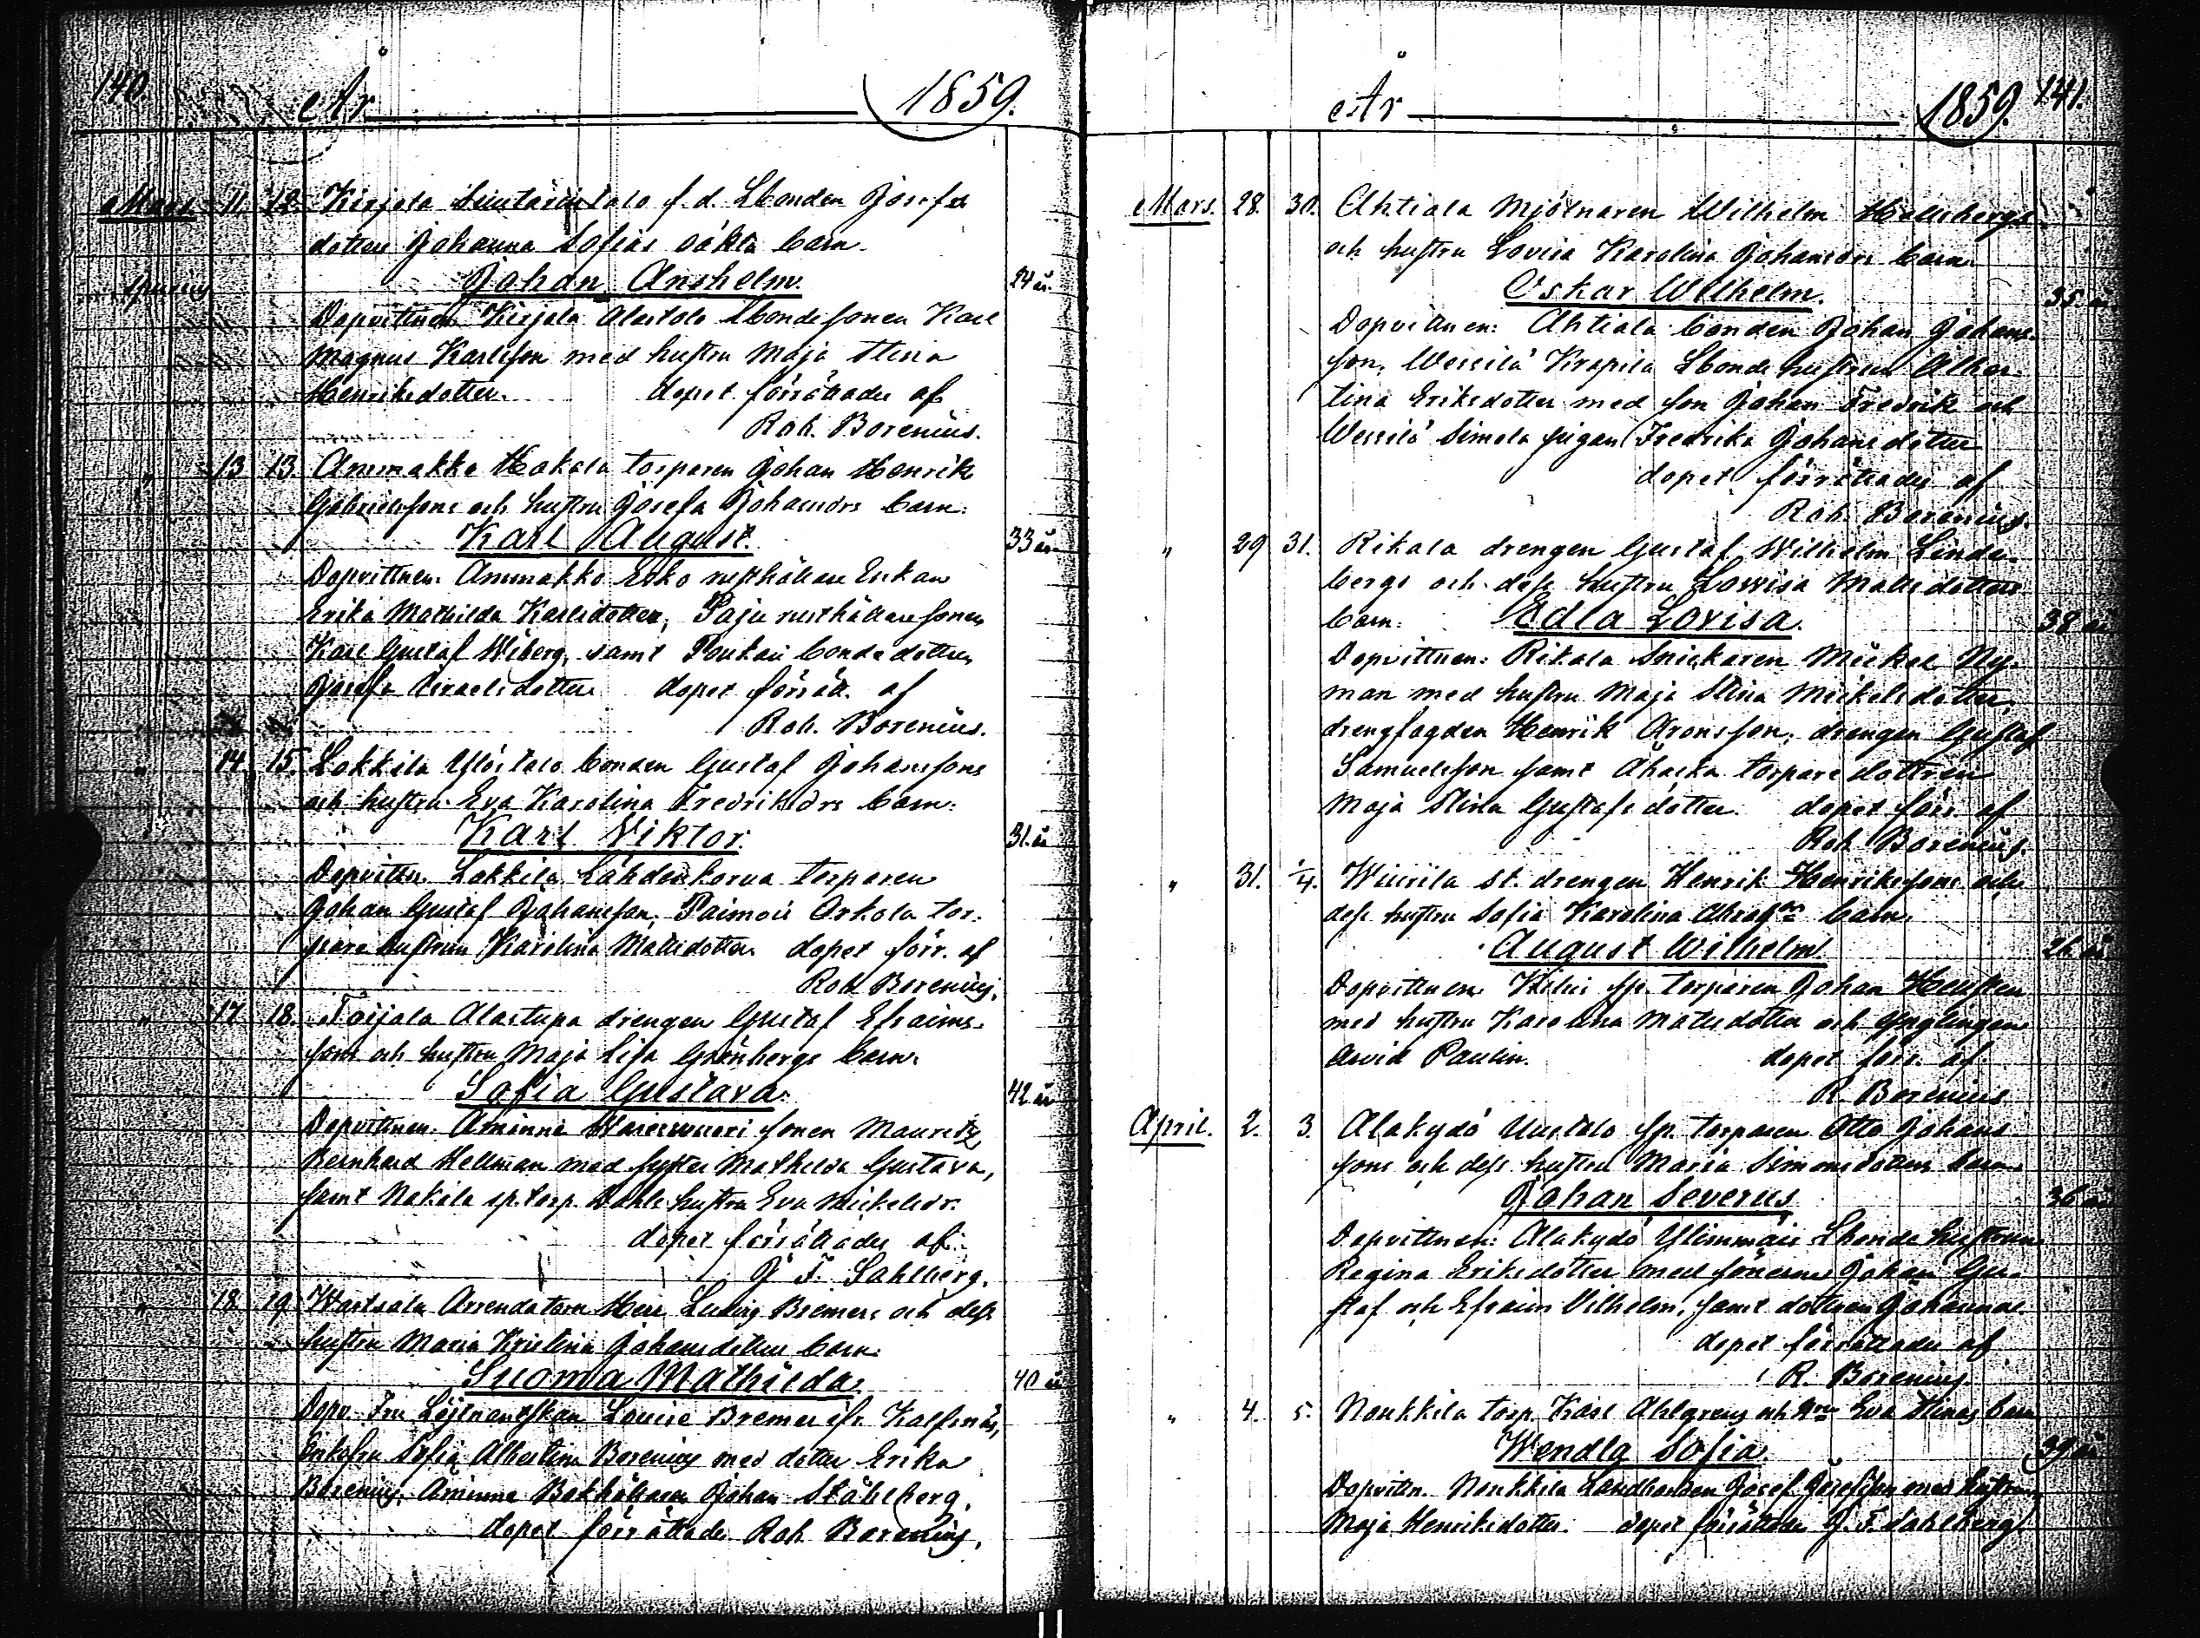 140. År 1859.
Mars. 11. 12. Kirjola
dotters Johanna Sofias oäkta barn.
spurius Johan Anshelm. 24 år
Dopvittnen Kirjola Alastalo Lbondesonen Karl
Magnus Karlsson med hustru Maja Stina
Henriksdotter. dopet förrättades af
Rob. Borenius.
" 13 13 Ammakko Hakala torparen Johan Henrik
Gabrielssons och hustru Josefa Johansdrs barn.
Karl August. 33 år
Dopvittnen. Ammakko Erko rusthållare Enkan
Erika Mathilda Karlsdotter, Paju rusthållaresonen
Karl Gustaf Wiberg, samt Poukan bondedottren
Josefa Israelsdotter dopet förrätt. af
Rob. Borenius.
" 14. 15. Lokkila Ylöstalo bonden Gustaf Johanssons
och hustru Eva Karolina Fredriksdrs barn.
Karl Viktor. 31 år
Dopvittn. Lokkila Lähdenkorva torparen
Johan Gustaf Johansson, Paimoi Orkola tor-
pare hustrun Karolina Mattsdotter dopet förr. af
Rob. Borenius.
" 17 18. Toijala Alastupa drengen Gustaf Efraims-
sons och hustru Maja Lisa Grönbergs barn.
Sofia Gustava. 42 år
Dopvittnen. Åminne sonen Mauritz
Bernhard Hellman med syster Mathilda Gustava,
samt Nakola sp. torp. hustru Eva Mickelsdr.
dopet förrättades af
J. F. Sahlberg.
" 18. 19 Wartsala Arrendatorn Herr Ludvig Bremers och dess
hustru Maria Kristina Johansdotters barn.
Suoma Mathilda. 40 år
Dopv. Fru Löjtnantskan Lovise Bremer fr. Kalfsnäs,
Enkefru Sofia Albertina Borenius med dotter Erika
Borenius, Åminne Bokhållaren Johan Ståhlberg.
dopet förrättades Rob. Borenius.
År 1859. 141.
Mars. 28. 30. Ahtiala Mjölnaren Wilhelm Hallsbergs
och hustru Lovisa Karolina Johansdrs barn
Oskar Wilhelm. 35 år
Dopvittnen: Ahtiala bonden Johan Johans-
son, Wessilä Krapila Lbonde hustrun Alber-
tina Eriksdotter med son Johan Fredrik och
Wessilä Simola pigan Fredrika Johansdotter
dopet förrättades af
Rob. Borenius.
" 29 31. Rikala drengen Gustaf Wilhelm Linde-
bergs och dess hustru Lovisa Mattsdotters
barn: Edla Lovisa. 38 år
Dopvittnen: Rikala Snickaren Mickel Ny-
man med hustru Maja Stina Mickelsdotter,
drengfogden Henrik Aronsson, drengen Gustaf
Samuelsson samt torparedottren
Maja Stina Gustafsdotter. dopet förr. af
Rob. Borenius.
" 31. 1/4. Wiurila st. drengen Henrik Henrikssons och
dess hustru Sofia Karolina barn.
August Wilhelm. 26 år
Dopvittnen torparen Johan
med hustru Karolina Mattsdotter och Ynglingen
Arvid Paulin. dopet förr. af
R. Borenius
April. 2. 3. Alakydö Uustalo sp. torparen Otto Johans
sons och dess hustru Maria Simonsdotters barn
Johan Severus 36 år
Dopvittnen: Alakydö Ylimmäis Lbonde hustrun
Regina Eriksdotter med sönerna Johan Gu-
staf och Efraim Vilhelm, samt dottren Johanna
dopet förrättades af
R. Borenius
" 4. 5. Noukkila torp. Karl Ahlgrens och h:ru Eva Stinas barn
Wendla Sofia. 39 år
Dopvittn. Noukkila Landbonden Josef Josefsson med hustrun
Maja Henriksdotter. dopet förrättades J. F. Sahlberg